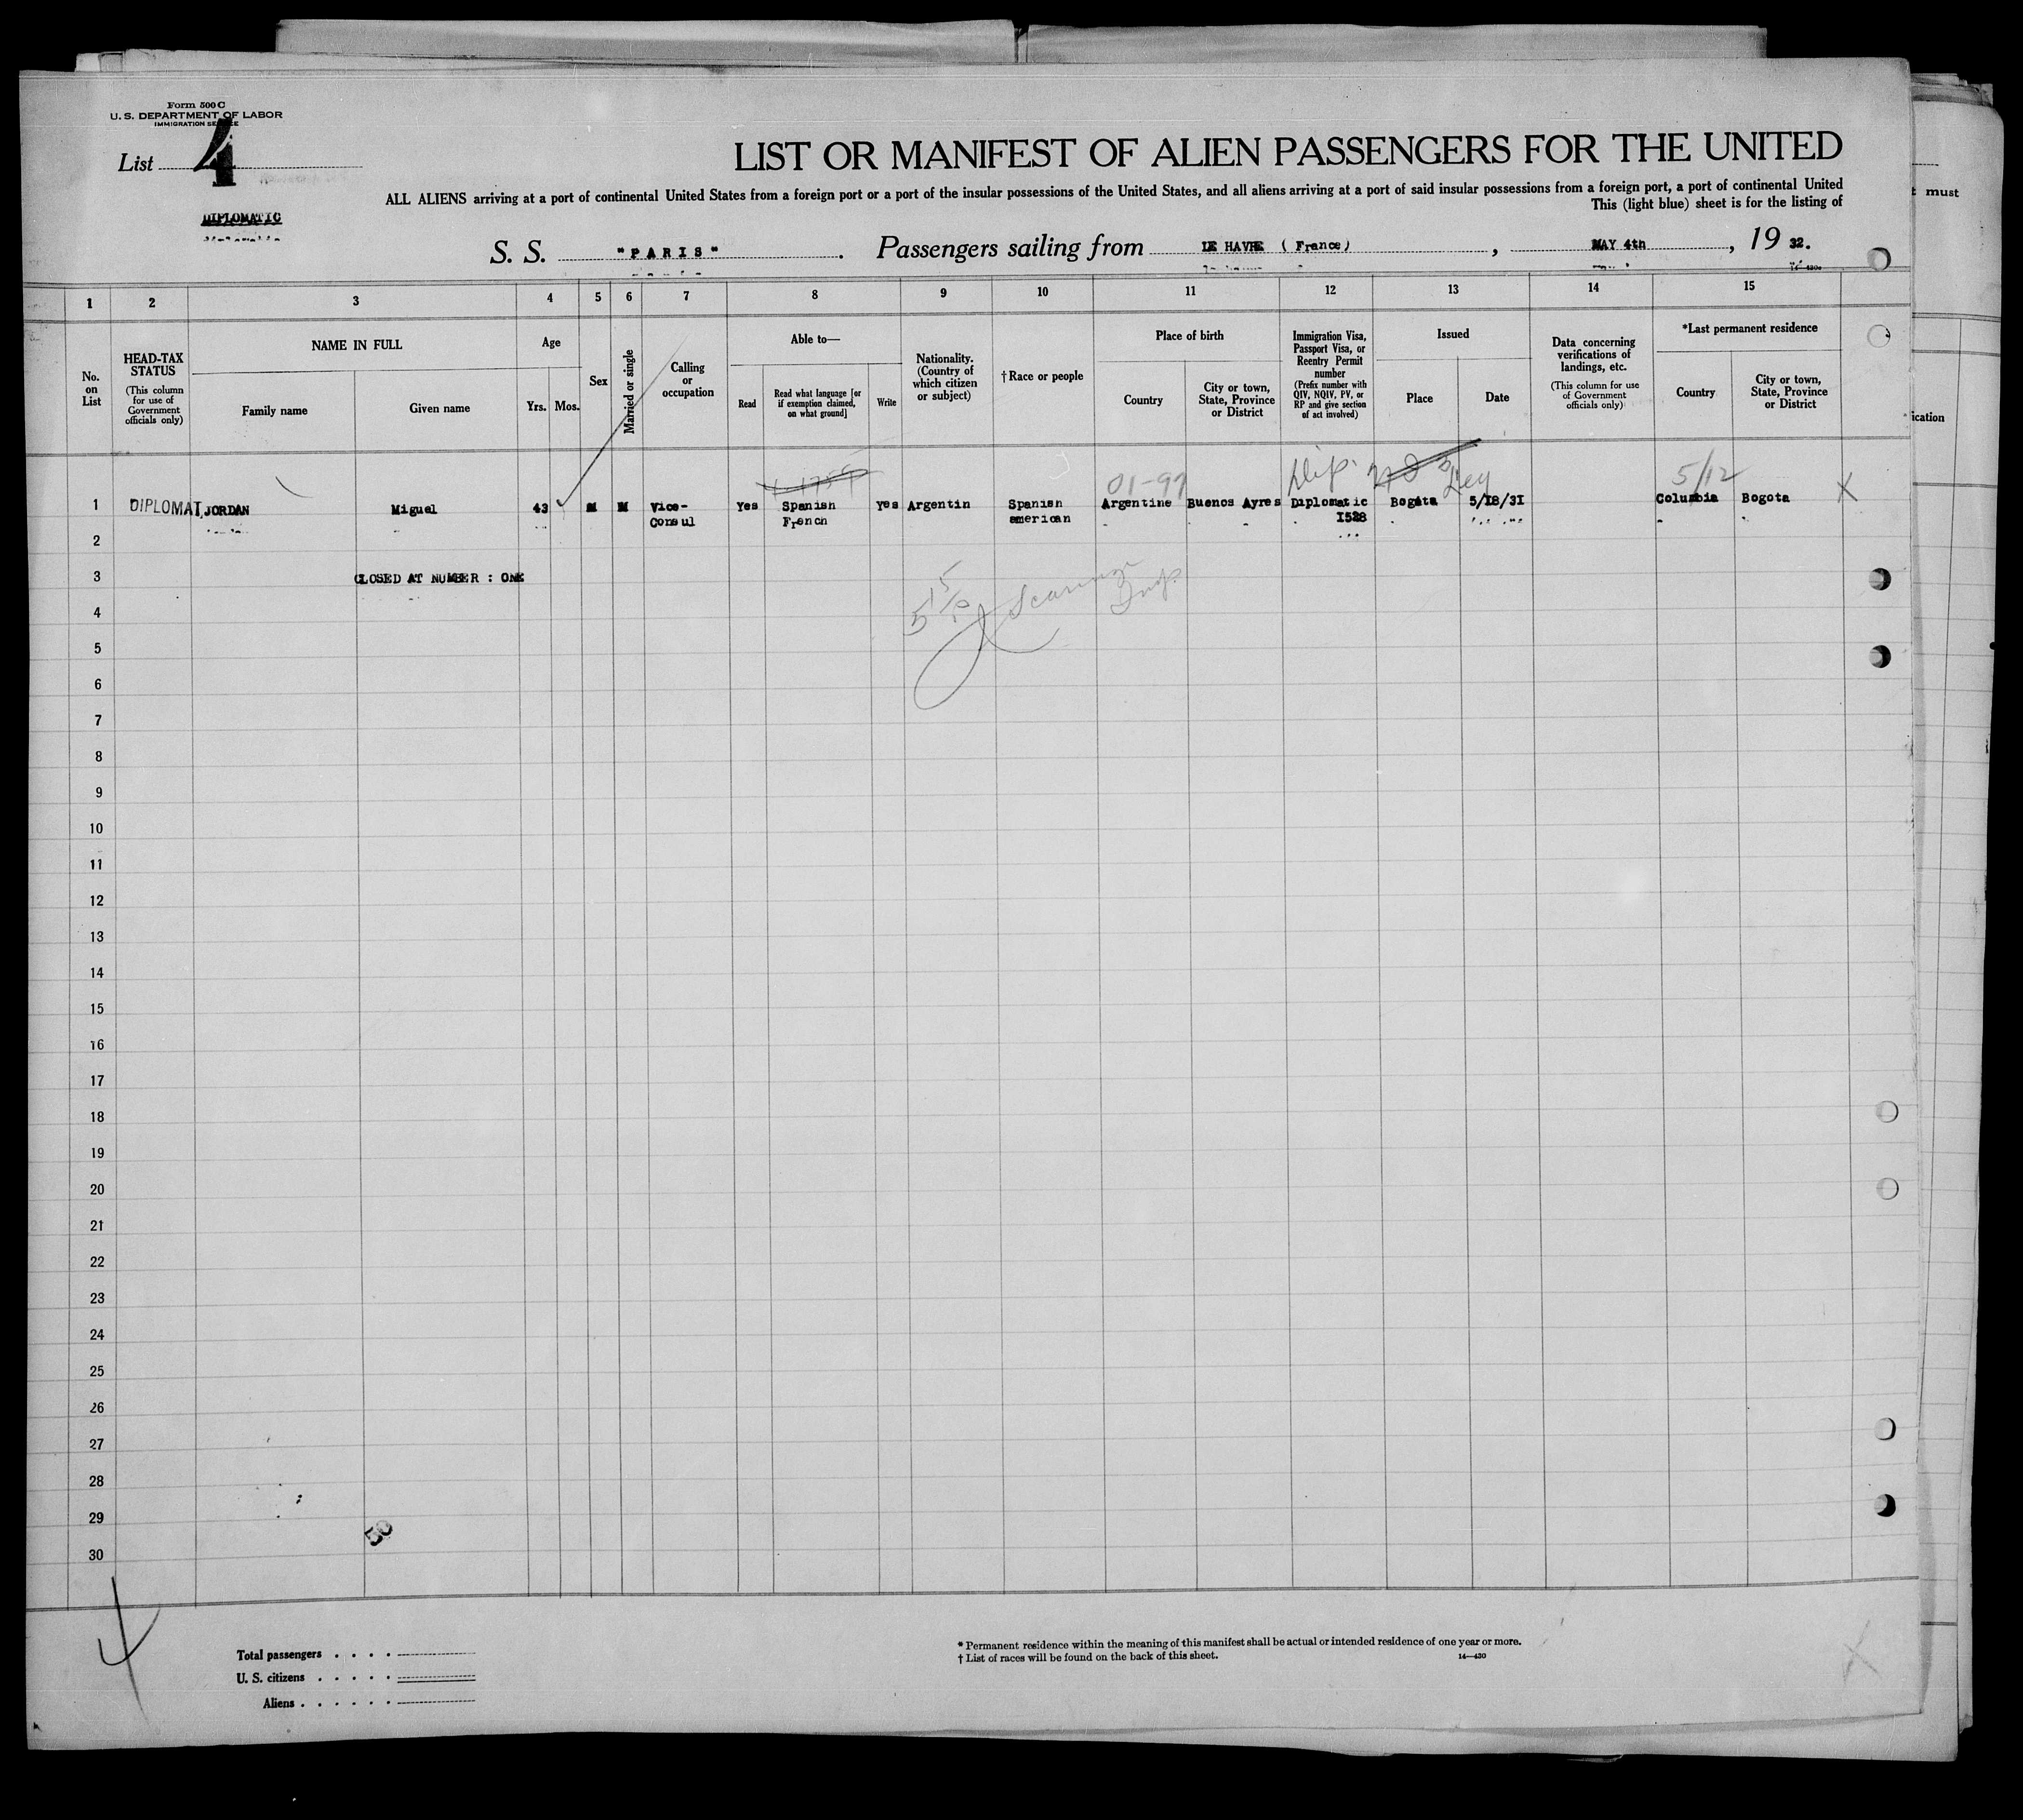 Form 500 C
U. S. DEPARTMENT OF LABOR
IMMIGRATION SERVICE
List 4
DIPLOMATIC
LIST OR MANIFEST OF ALIEN PASSENGERS FOR THE UNITED
ALL ALIENS arriving at a port of continental United States from a foreign port or a port of the insular possessions of the United States, and all aliens arriving at a port of said insular possessions from a foreign port, a port of continental United
This (light blue) sheet is for the listing of
t must
S. S. "PARIS". Passengers sailing from LE HAVRE ( France) , MAY 4th , 19 32.
14-430
1 2 3 4 5 6 7 8 9 10 11 12 13 14 15
No. on List
HEAD-TAX STATUS
(This column for use of Government officials only)
NAME IN FULL
Family name
Given name
Age
Yrs. Mos.
Sex
Married or single
Calling or occupation
Able to—
Read
Read what language [or if exemption claimed, on what ground]
Write
Nationality. (Country of which citizen or subject)
†Race or people
Place of birth
Country
City or town, State, Province or District
Immigration Visa, Passport Visa, or Reentry Permit number
(Prefix number with QIV, NQIV, PV, or RP and give section of act involved)
Issued
Place
Date
Data concerning verifications of landings, etc.
(This column for use of Government officials only)
*Last permanent residence
Country
City or town, State, Province or District
ication
01-97 Dip. 5/12
1 DIPLOMAT JORDAN Miguel 43 M M Vice- Yes Spanish Yes Argentin Spanish Argentine Buenos Ayres Diplomatic Bogota 5/18/31 Columbia Bogota X
Consul French american 1528
2
3 CLOSED AT NUMBER : ONE
4
5
6
7
8
9
10
11
12
13
14
15
16
17
18
19
20
21
22
23
24
25
26
27
28
29
50
30
4
Total passengers
U. S. citizens
Aliens
* Permanent residence within the meaning of this manifest shall be actual or intended residence of one year or more.
† List of races will be found on the back of this sheet.
14—430
X